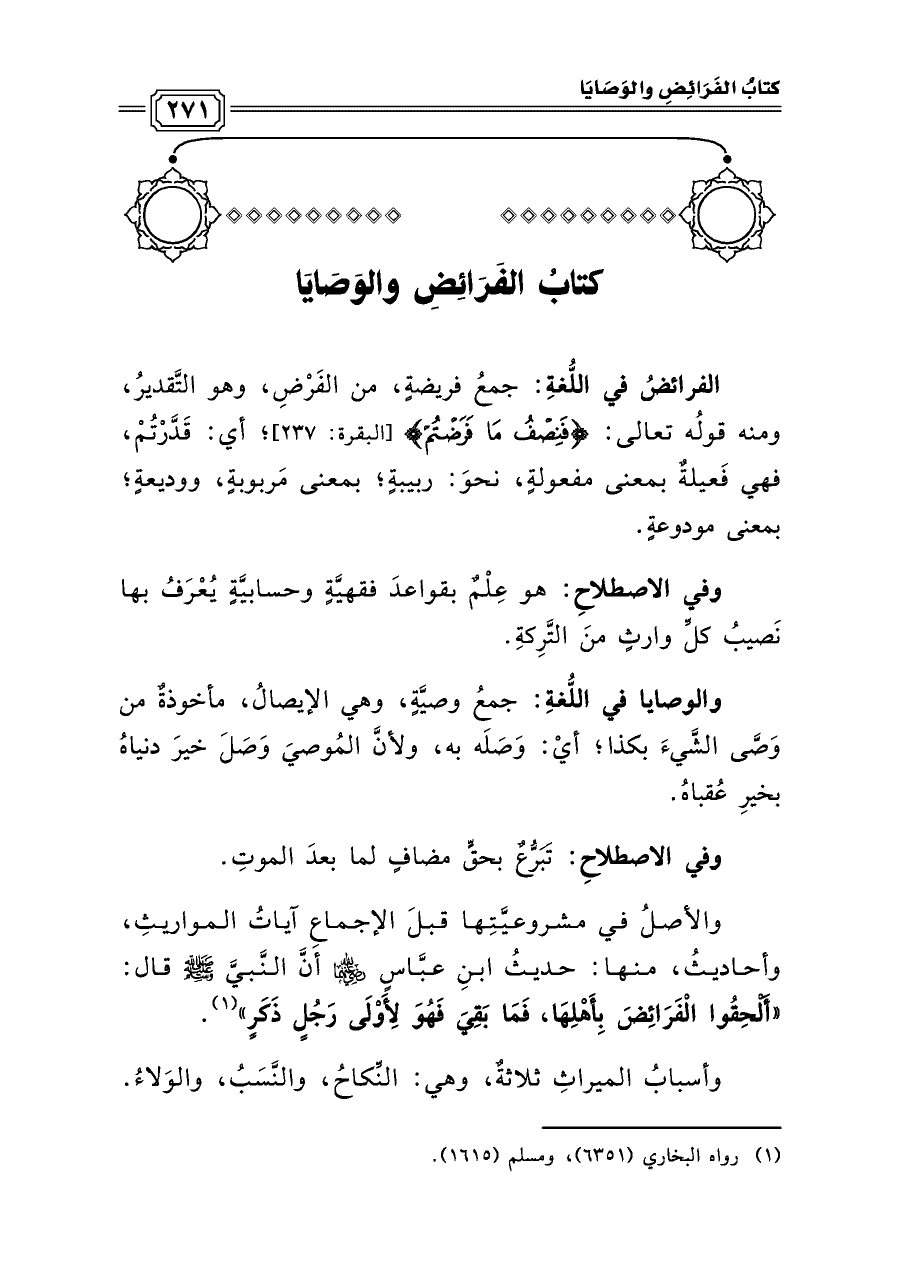 كتابُ الفَرَائِضِ والوَصَايَا
٢٧١
كتابُ الفَرَائِضِ والوَصَايَا
الفرائضُ في اللُّغةِ: جمعُ فريضةٍ، من الفَرْضِ، وهو التَّقديرُ،
ومنه قولُه تعالى: ﴿فَنِصۡفُ مَا فَرَضۡتُمۡ﴾ [البقرة: ٢٣٧]؛ أي: قَدَّرْتُمْ،
فهي فَعيلةٌ بمعنى مفعولةٍ، نحوَ: ربيبةٍ؛ بمعنى مَربوبةٍ، ووديعةٍ؛
بمعنى مودوعةٍ.
وفي الاصطلاحِ: هو عِلْمٌ بقواعدَ فقهيَّةٍ وحسابيَّةٍ يُعْرَفُ بها
نَصيبُ كلِّ وارثٍ منَ التَّرِكةِ.
والوصايا في اللُّغةِ: جمعُ وصيَّةٍ، وهي الإيصالُ، مأخوذةٌ من
وَصَّى الشَّيءَ بكذا؛ أيْ: وَصَلَه به، ولأنَّ المُوصيَ وَصَلَ خيرَ دنياهُ
بخيرِ عُقباهُ.
وفي الاصطلاحِ: تَبَرُّعٌ بحقٍّ مضافٍ لما بعدَ الموتِ.
والأصلُ في مشروعيَّتِها قبلَ الإجماعِ آياتُ المواريثِ،
وأحاديثُ، منها: حديثُ ابنِ عبَّاسٍ ﵄ أنَّ النَّبيَّ ﷺ قال:
«أَلْحِقُوا الْفَرَائِضَ بِأَهْلِهَا، فَمَا بَقِيَ فَهُوَ لِأَوْلَى رَجُلٍ ذَكَرٍ»(١).
وأسبابُ الميراثِ ثلاثةٌ، وهي: النِّكاحُ، والنَّسَبُ، والوَلاءُ.
(١) رواه البخاري (٦٣٥١)، ومسلم (١٦١٥).